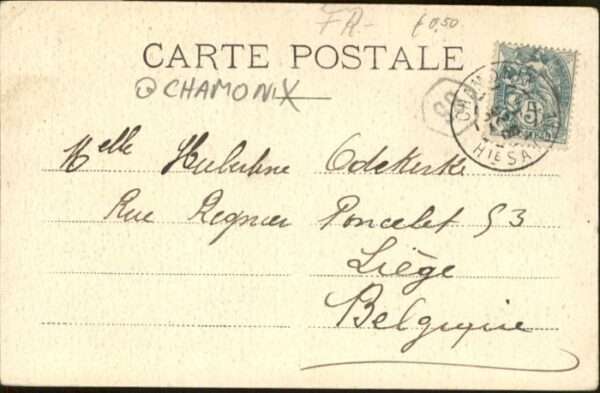 FR- £0,50
CARTE POSTALE
CHAMONIX
CHAMONIX
HTE SA
5
Melle Hubertine Odekerke
Rue Regnier Poncelet 53
Liège
Belgique